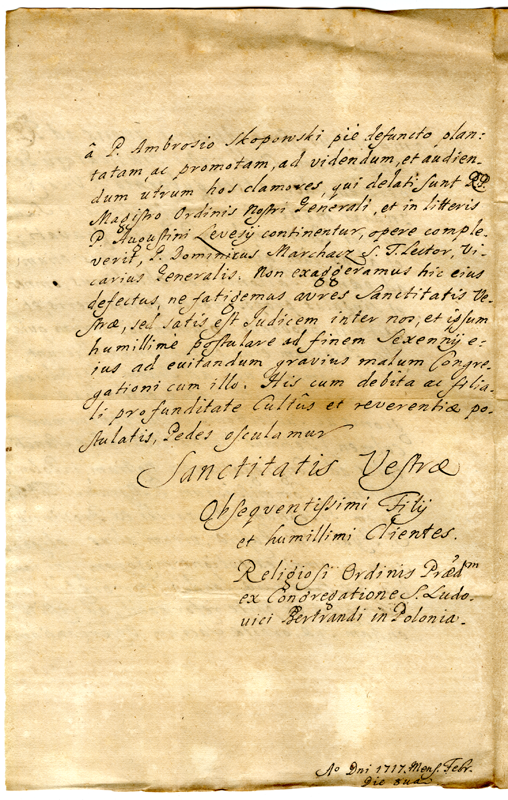 â P. Ambrosio Skopowski pie defuncto plan:
tatam, ac promotam, ad videndum, et audien-
dum utrum hos clamores, qui delati sunt
Magistro Ordinis Nostri Generali, et in litteris
P. Augustini Levesij continentur, opere comple-
verit, P. Dominicus Marchacz S. T. Lector, Vi-
carius Generalis. Non exaggeramus hic eius
defectus, ne fatigemus aures Sanctitatis Ve-
stræ, sed satis est Judicem inter nos, et ipsum
humillime postulare ad finem Sexennij e-
ius ad euitandum gravius malum Congre-
gationi cum illo. His cum debita ac filia-
li profunditate Cultûs et reverentiæ po-
stulatis, Pedes osculamur
Sanctitatis Vestræ
Obseqventissimi Filij
et humillimi Clientes.
Religiosi Ordinis Præd^m
ex Congregatione S. Ludo-
uici Bertrandi in Polonia.
Ao Dni 1717. Mens. Febr.
Die